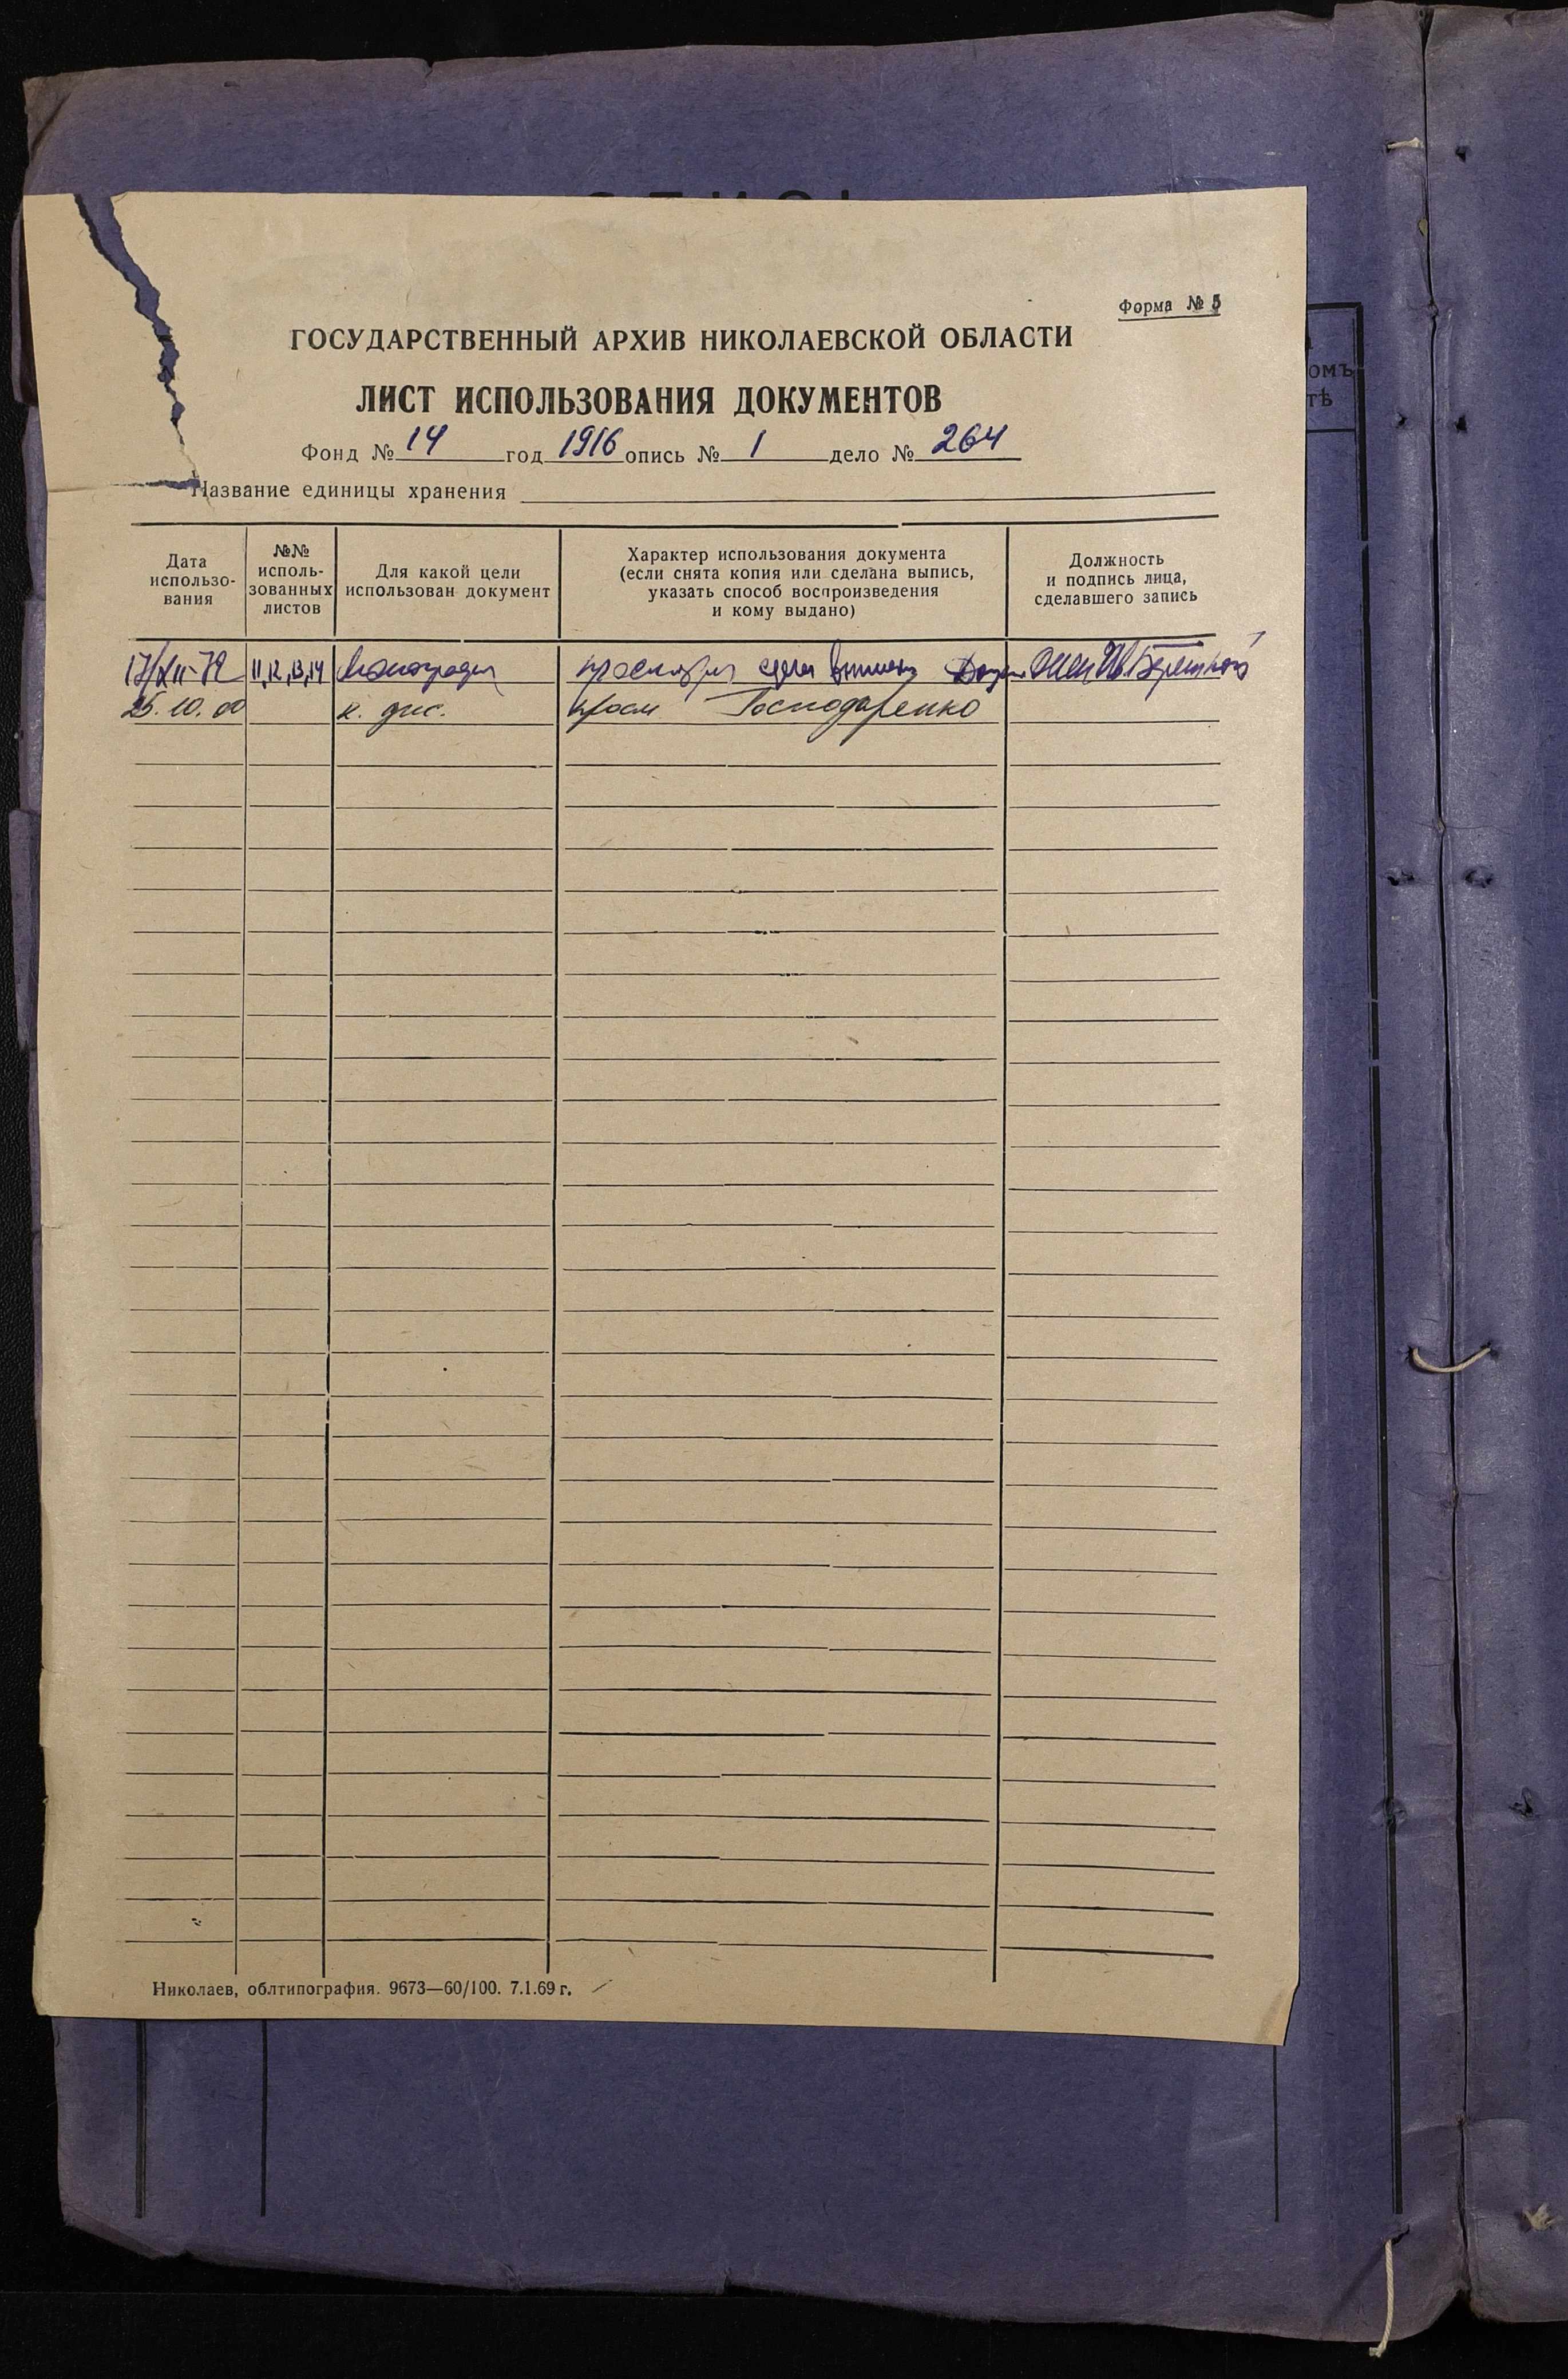 ОПИСЬ
омъ
тѣ
Форма № 5
ГОСУДАРСТВЕННЫЙ АРХИВ НИКОЛАЕВСКОЙ ОБЛАСТИ
ЛИСТ ИСПОЛЬЗОВАНИЯ ДОКУМЕНТОВ
Фонд № 14 год 1916 опись № 1 дело № 264
Название единицы хранения
Дата
использо-
вания
№№
исполь-
зованных
листов
Для какой цели
использован документ
Характер использования документа
(если снята копия или сделана выпись,
указать способ воспроизведения
и кому выдано)
Должность
и подпись лица,
сделавшего запись
17/XII-72 11,12,13,14 Монография
25.10.00 к. дис. просм Господаренко
Николаев, облтипография. 9673—60/100. 7.1.69 г.